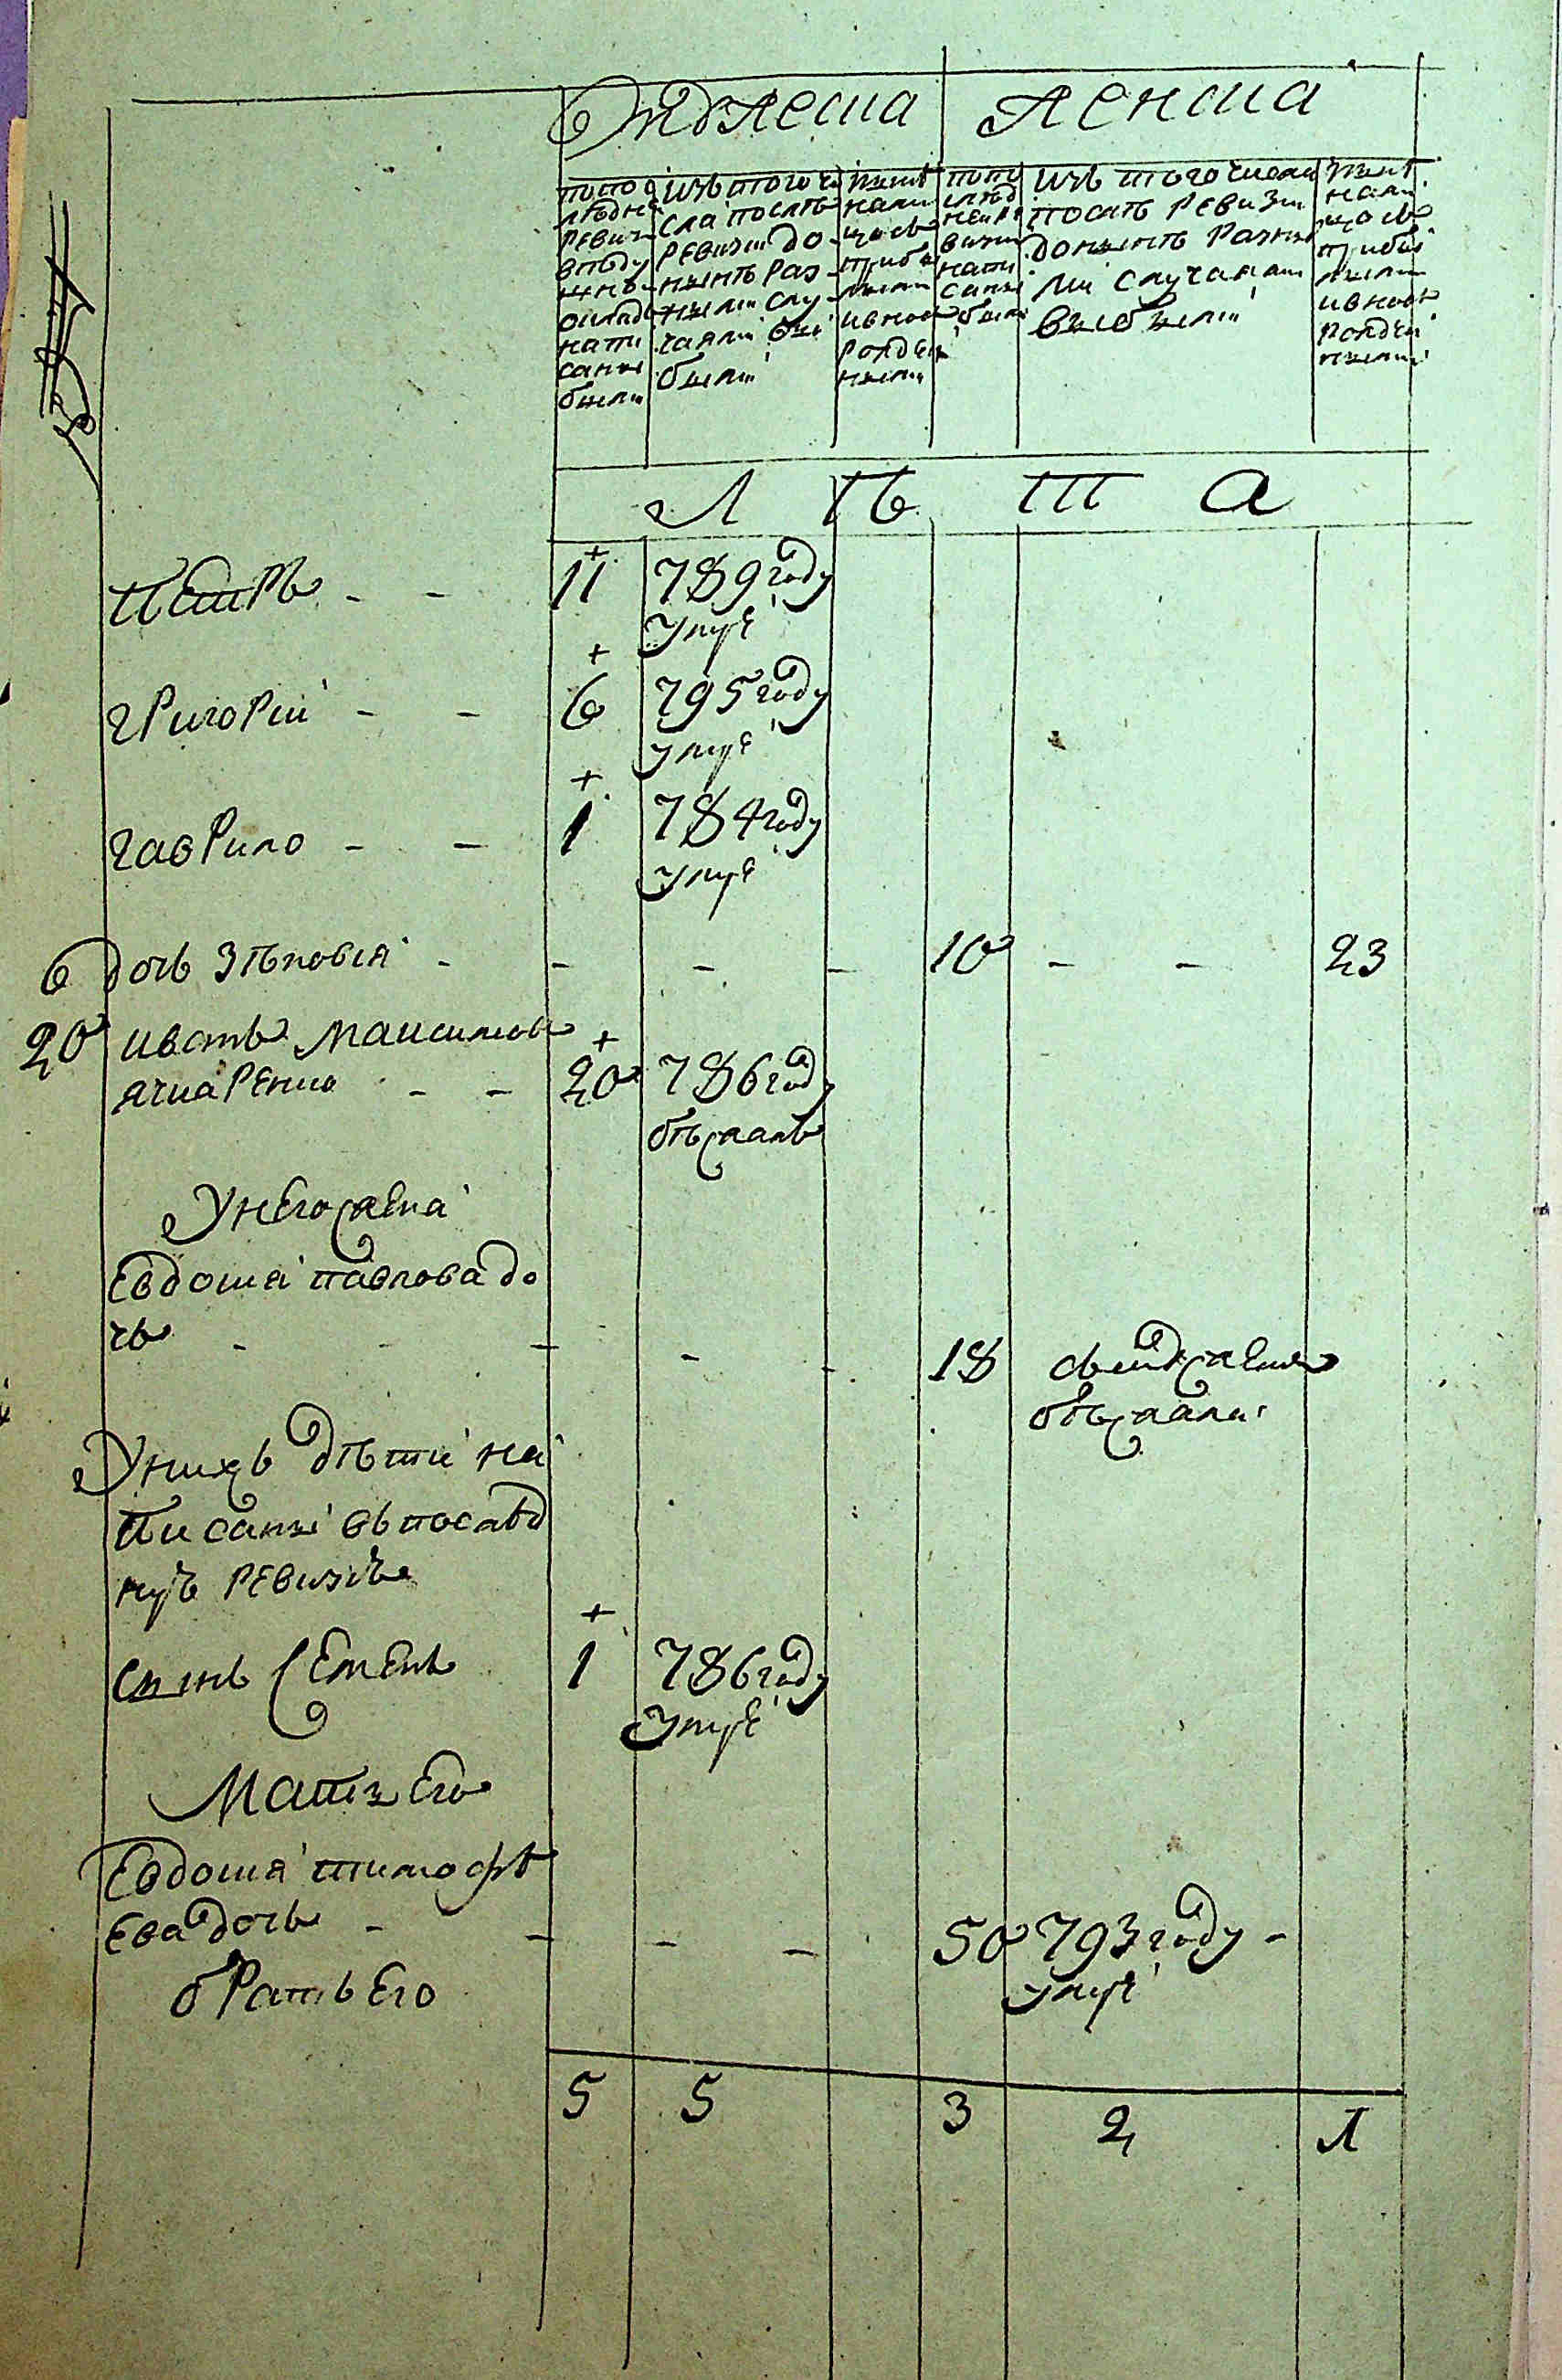 Мужеска Женска
по послѣдней ревизи въ подушнъ окладъ написаны были
изъ того числа послѣ ревизии до нынѣ разными случаями выбыли
нынѣ на лицо съ прибылыми и вновь рожденными
по послѣдней ревизии написаны были
изъ того числа послѣ ревизии до нынѣ разными случаями выбыли
нынѣ на лицо съ прибылыми и вновь рожденными
Л ѣ т а
Петръ - - 11 789 году
умре
григорій - - 6 795 году
умре
гаврило - - 1 784 году
умре
6 дочь зѣновія - - - - 10 - - 23
20 иванъ максимовъ
ячкаренко - - 20 786 году
бѣжалъ
У него жена
Евдокия павлова до
чь - - - - - 18 съ мужемъ
бѣжала
У нихъ дѣти на
писаны въ послѣд
нуѣ ревизіѣ
сынъ Семенъ 1 786 году
умре
Мать Его
Евдокия тимофѣ
Ева дочь - - - - 50 793 году -
умре
братъ Его
5 5 3 2 1